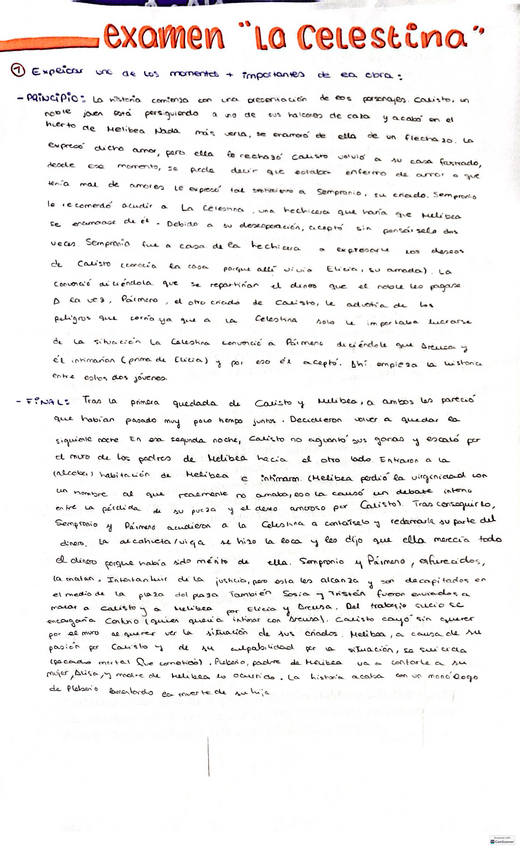 examen "La Celestina"
① Explicar uno de los momentos + importantes de la obra:
- PRINCIPIO: La historia comienza con una presentación de los personajes. Calisto, un
noble joven está persiguiendo a uno de sus halcones de caza y acabó en el
huerto de Melibea. Nada más verla, se enamoró de ella de un flechazo. La
expresó dicho amor, pero ella lo rechazó. Calisto volvió a su casa
desde ese momento, se podía decir que estaba enfermo de amor o que
tenía mal de amores. Le expresó tal sentimiento a Sempronio, su criado. Sempronio
le recomendó acudir a La Celestina, una hechicera que haría que Melibea
se enamorase de él. Debido a su desesperación, aceptó sin pensárselo dos
veces. Sempronio fue a casa de la hechicera a expresarle los deseos
de Calisto (conocía la casa porque allí vivía Elicia, su amada). La
convenció diciéndola que se repartirían el dinero que el noble les pagase
A la vez, Pármeno, el otro criado de Calisto, le advertía de los
peligros que corría ya que a la Celestina solo le importaba lucrarse
de la situación. La Celestina convenció a Pármeno diciéndole que Areusa y
él intimarían (prima de Elicia) y por eso él aceptó. Ahí empieza la historia
entre estos dos jóvenes.
- FINAL: Tras la primera quedada de Calisto y Melibea, a ambos les pareció
que habían pasado muy poco tiempo juntos. Decidieron volver a quedar la
siguiente noche. En esa segunda noche, Calisto no aguantó sus ganas y escaló por
el muro de los padres de Melibea hacia el otro lado. Entraron a la
(alcoba) habitación de Melibea e intimaron. (Melibea perdió la virginidad con
un hombre al que realmente no amaba, eso la causó un debate interno
entre la pérdida de su pureza y el deseo amoroso por Calisto). Tras conseguirlo,
Sempronio y Pármeno acudieron a la Celestina a contárselo y reclamarle su parte del
dinero. La alcahueta/vieja se hizo la loca y les dijo que ella merecía todo
el dinero porque había sido mérito de ella. Sempronio y Pármeno, enfurecidos,
la matan. Intentan huir de la justicia, pero esta les alcanza y son decapitados en
el medio de la plaza. También Sosia y Tristán fueron enviados a
matar a Calisto y a Melibea por Elicia y Areusa. Del trabajo sucio se
encargaría (quien quería intimar con Areusa). Calisto cayó sin querer
por el muro al querer ver la situación de sus criados. Melibea, a causa de su
pasión por Calisto y de su culpabilidad por la situación, se suicida
(pecado mortal que cometió). Pleberio, padre de Melibea va a contarle a su
mujer, Alisa, y madre de Melibea lo ocurrido. La historia acaba con un monólogo
de Pleberio lamentando la muerte de su hija
CamScanner